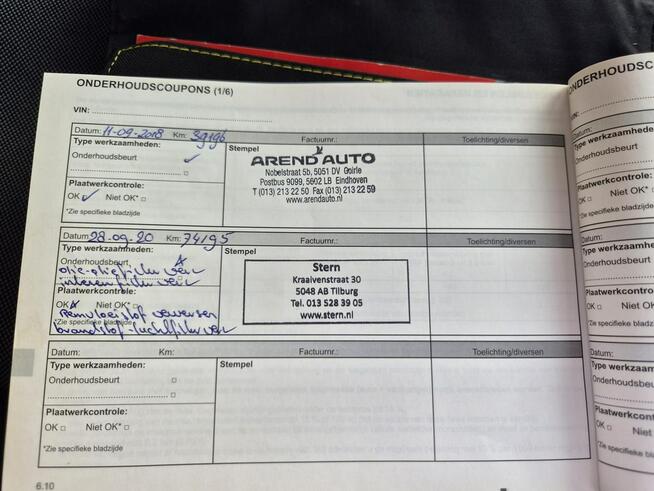 ONDERHOUDSCOUPONS (1/6)
VIN:
Datum: 11-09-2018 Km: 39196 Factuurnr.: Toelichting/diversen
Type werkzaamheden: Stempel
Onderhoudsbeurt ✓
AREND AUTO
Nobelstraat 5b, 5051 DV Goirle
Postbus 9099, 5602 LB Eindhoven
T (013) 213 22 50 Fax (013) 213 22 59
www.arendauto.nl
Plaatwerkcontrole:
OK ✓ Niet OK* □
*Zie specifieke bladzijde
Datum: 28-09-20 Km: 74195 Factuurnr.: Toelichting/diversen
Type werkzaamheden: Stempel
Onderhoudsbeurt
olie-oliefilter verv
interieurfilter verv
Stern
Kraaivenstraat 30
5048 AB Tilburg
Tel. 013 528 39 05
www.stern.nl
Plaatwerkcontrole:
OK Niet OK* □
Remvloeistof verversen
*Zie specifieke bladzijde
brandstof-luchtfilter verv
Datum: Km: Factuurnr.: Toelichting/diversen
Type werkzaamheden: Stempel
Onderhoudsbeurt □
□
Plaatwerkcontrole:
OK □ Niet OK* □
*Zie specifieke bladzijde
6.10
ONDERHOUDSC
VIN:
Datum:
Type werkzaam
Onderhoudsbeurt
Plaatwerkcontro
OK □ Niet OK
*Zie specifieke bladz
Datum:
Type werkzaam
Onderhoudsbeurt
Plaatwerkcontr
OK □ Niet OK
*Zie specifieke blad
Datum:
Type werkzaam
Onderhoudsbeu
Plaatwerkcont
OK □ Niet
*Zie specifieke b